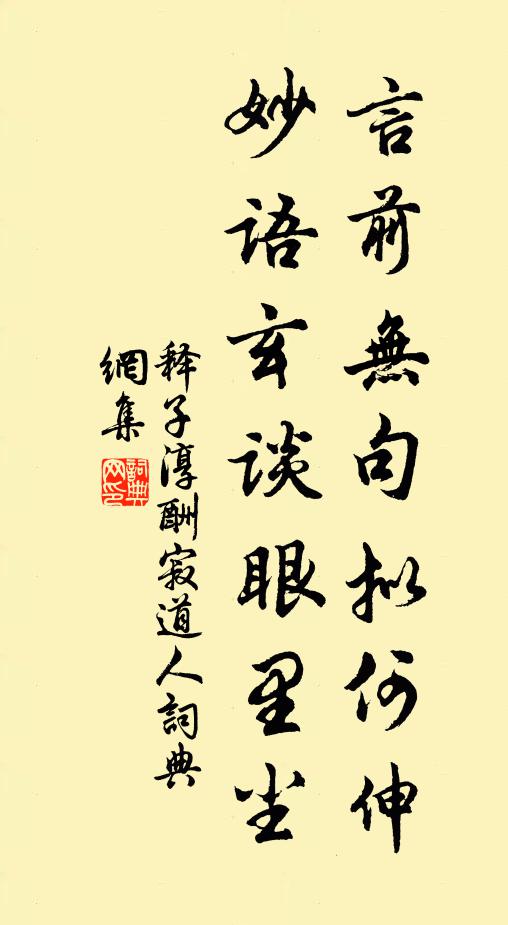 言前無句拟何伸
妙语玄谈眼里尘
释子淳酬寂道人詞典
網集
詞典網印